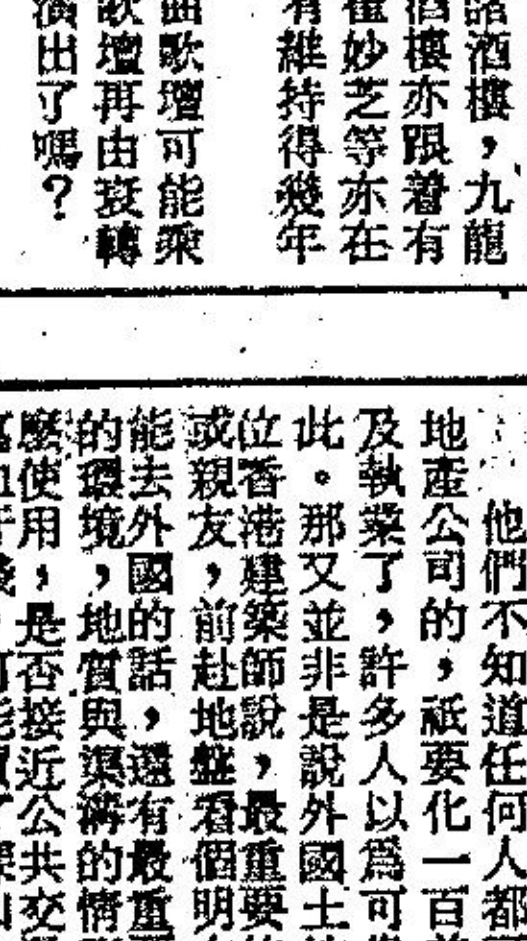 諸酒樓，九龍
酒樓亦跟着有
崔妙芝等亦在
有維持得幾年
曲歌壇可能乘
歌壇再由衰轉
演出了嗎？
他們不知道任何人都
地產公司的，祇要化一百
及執業了，許多人以爲可
此。那又並非是說外國土
位香港建築師說，最重要
或親友，前赴地盤看個明
能去外國的話，還有最重
的環境，地質與渠溝的情
麼使用，是否接近公共交